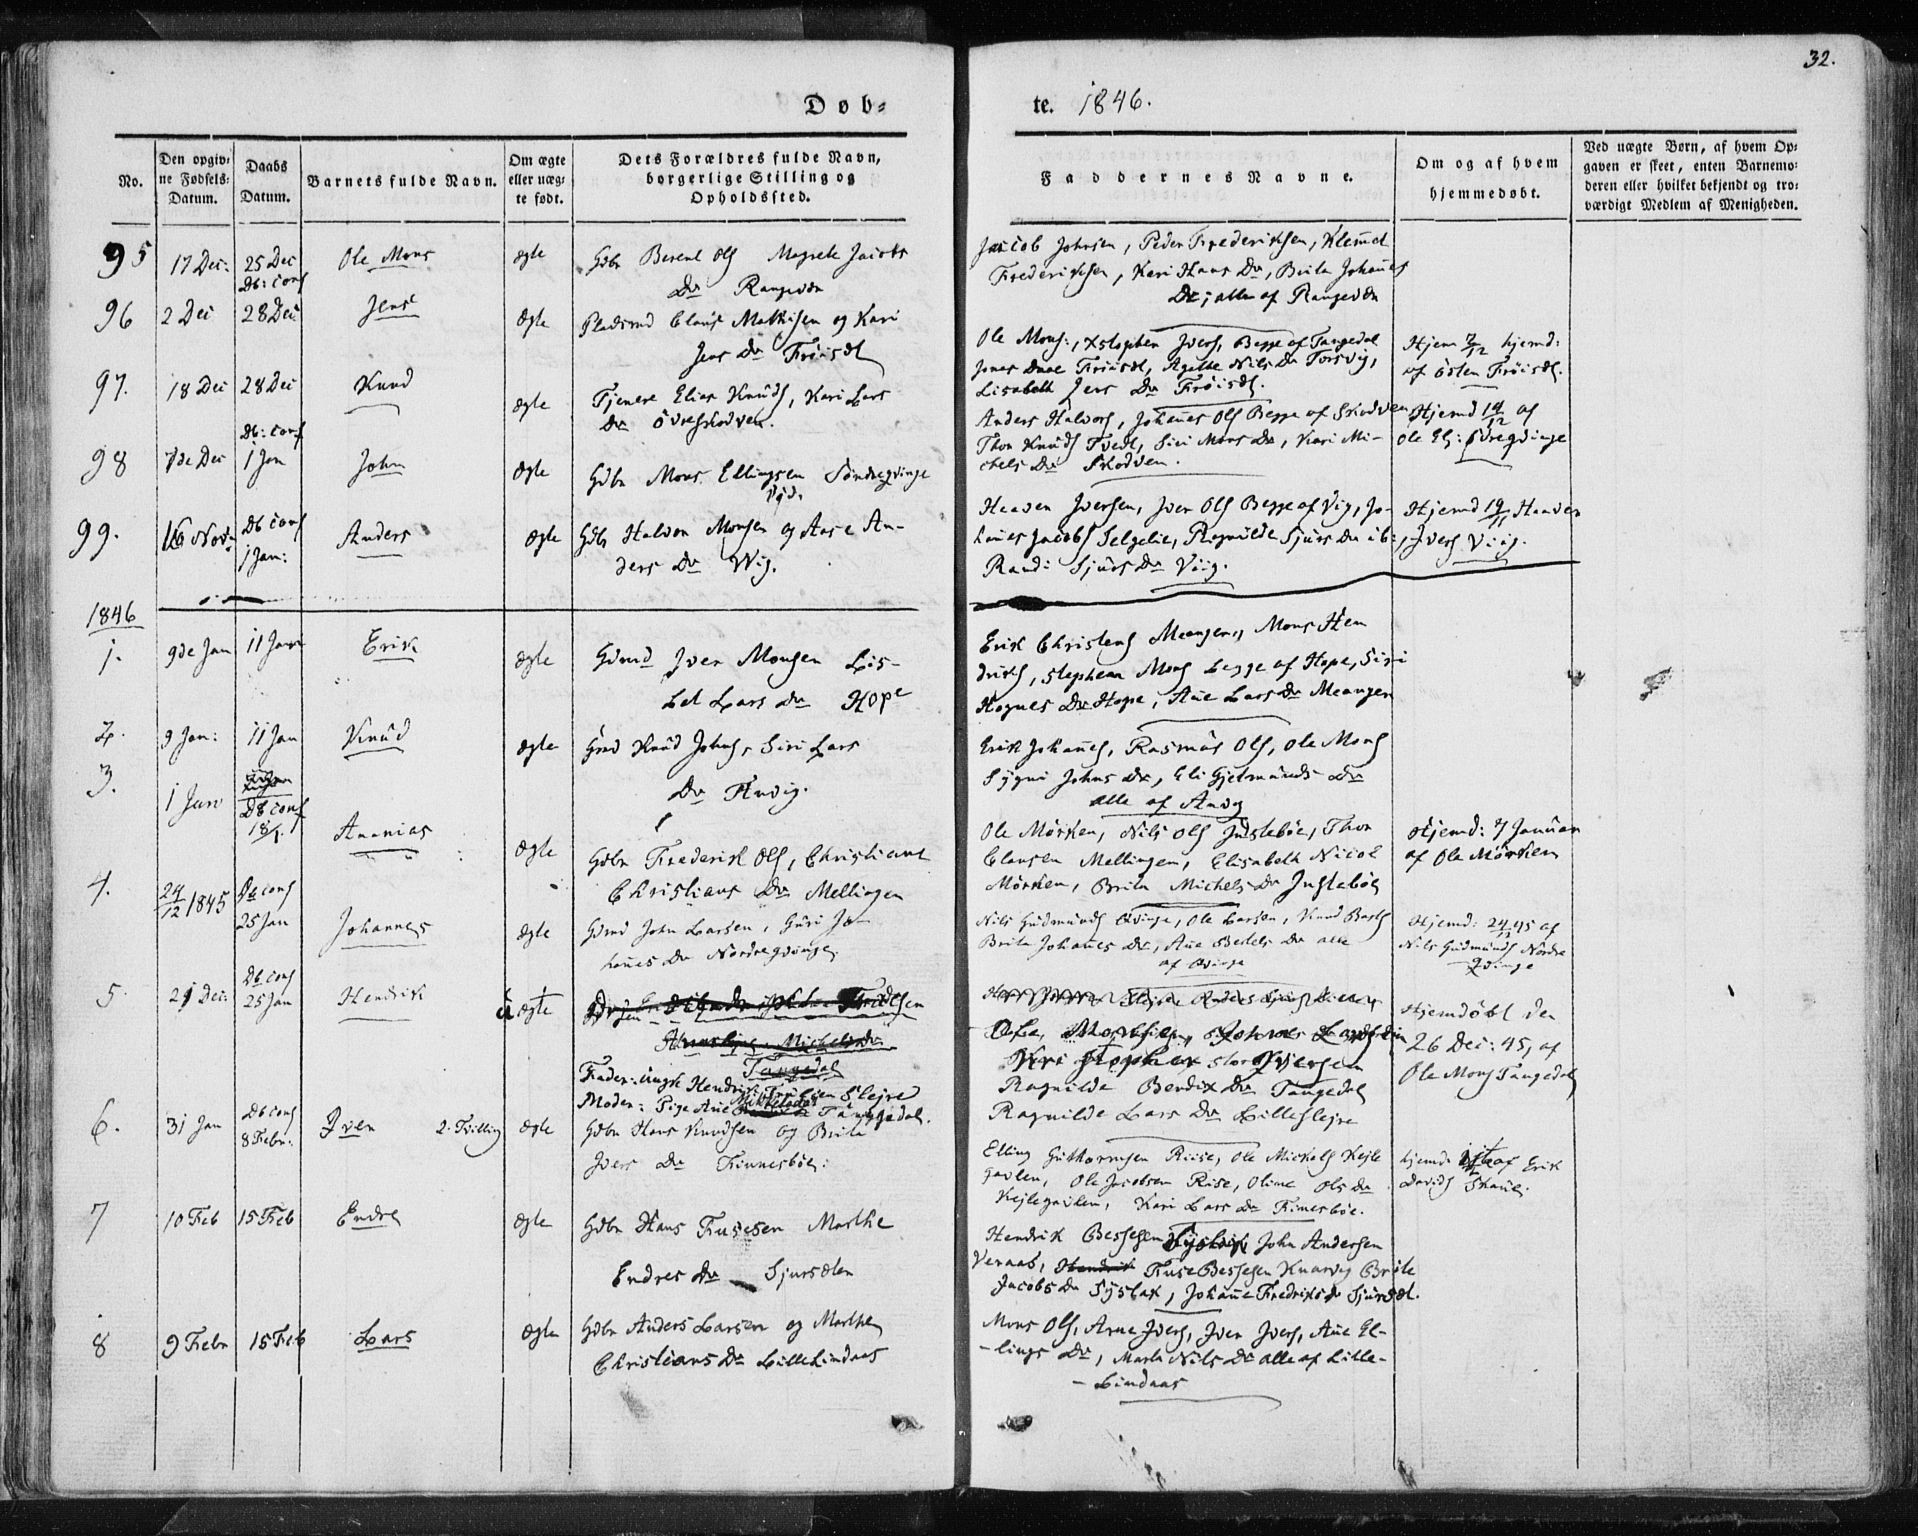 32.
Døb-
te. 1846.
No.
Den opgiv-
ne Fødsels-
Datum.
Daabs
Datum.
Barnets fulde Navn.
Om ægte
eller uæg-
te født.
Dets Forældres fulde Navn,
borgerlige Stilling og
Opholdssted.
Faddernes Navne.
Om og af hvem
hjemmedøbt.
Ved uægte Børn, af hvem Op-
gaven er skeet, enten Barnemo-
deren eller hvilket bekjendt og tro-
værdigt Medlem af Menigheden.
95
17 Dec:
25 Dec
Ole Mons
ægte
Gdbr Berent Ols Magrete Jacobs
Dr
Jacob Johnsen, Peder Frederiksen, Klemet
Frederiksen, Kari Hans Dr, Brita Johanes
Dr; alle af
96
2 Dec
28 Dec
Jens
ægte
Pladsmd Claus Mathisen og Kari
Jens Dr Frøisdl
Ole Mons:, Xstopher Ivers, Begge af Tangedal
Jonas Frøisdl, Agathe Nils Dr Torsvig,
Lisabeth Jens Dr Frøisdl.
Hjem 7/12 hjemd:
af Østen Frøisdl.
97.
18 Dec
28 Dec
Knud
ægte
Tjenere Elias Knuds, Kari Lars
Dr Øvreskodven.
Anders Halvors, Johanes Ols Begge af Skodven
Thor Knuds Tvedt, Siri Mons Dr, Kari Mi-
chels Dr Skodven.
Hjemd 19/12 af
98
7de Dec
Db: conf
1 Jan
John
ægte
Gdbr Mons Ellingsen Søndregvinge
99.
16 Nov:
Db conf
1 Jan:
Anders
ægte
Gdbr Halvor Monsen og Aase An-
ders Dr Wig.
Haaven Iversen, Iver Ols Begge af Vig, Jo-
hanes Jacobs Selgelie, Ragnilde Sjurs Dr ib:,
Rand: Sjurs Dr Viig.
Hjemd 19/11 Haaven
Ivers Viig.
1846
1.
9de Jan
11 Janr
Erik
ægte
Gdmd Iver Monsen Lis-
bet Lars Dr Hope
Erik Christens Meangen, Mons Hen
driks, Stephen Mons begge af Hope, Siri
Hognes Dr Hope, Ane Lars Dr Meangen
2.
9 Jan:
11 Jan
Knud
ægte
Gmd Knud Johns, Siri Lars
Dr
Erik Johanes, Rasmus Ols, Ole Mons
Sygni Johns Dr, Eli Gjetmunds Dr
alle af
3.
1 Janr
Db conf
18/1.
Ananias
ægte
Gdbr Frederik Ols, Christiane
Christians Dr Mellingen
Ole Mørken, Nils Ols Indslebøe, Thor
Clausen Mellingen, Elisabeth Nicol
Mørken, Brita Michels Dr
Hjemd: 7 Januar
af Ole Mørken
4.
24/12 1845
Db conf
25 Jan
Johannes
ægte
Gdmd John Larsen, Guri Jo-
hanes Dr Nordregvinge
Nils Gudmunds Qvinge, Ole Larsen, Knud
Brita Johanes Dr, Ane Dr alle
af Qvinge
Hjemd: 24/12 45 af
Nils Gudmunds Nordre
Qvinge
5
21 Dec:
Db conf
25 Jan
Hendrik
uægte
Tangedal
Fader: Ungk Hendrik Slejre
Moder: Pige Ane Mikkelsdtr Tangedal.
Iversen
Ragnilde Bendix Dr Tangedal
Ragnilde Lars Dr Lilleslejre
Hjemdøbt den
26 Dec: 45, af
Ole Mons Tangedal
6.
31 Jan
Db conf
8 Febr:
Iver
2. Tvilling
ægte
Gdbr Hans Knudsen og Brite
Ivers Dr Finnesbøe:
Elling Guttormsen Riise, Ole Mickels Kejle
gavlen, Ole Jacobsen Riise, Oline Ols Dr
Kejlegavlen, Kari Lars Dr
hjemd: af Erik
Davids
7
10 Feb
15 Feb
Endre
ægte
Gdbr Hans Fusesen Marthe
Endres Dr Sjursdlen
Hendrik John Andersen
Veraas, Hendrik Fuse Knarvig Brite
Jacobs Dr Syslak, Johane Fredriks Dr
8
9 Febr
15 Feb
Lars
ægte
Gdbr Anders Larsen og Marthe
Christians Dr Lille Lindaas
Mons Ols, Arne Ivers, Iver Ivers, Ane El-
lings Dr, Marta Nils Dr alle af Lille-
Lindaas